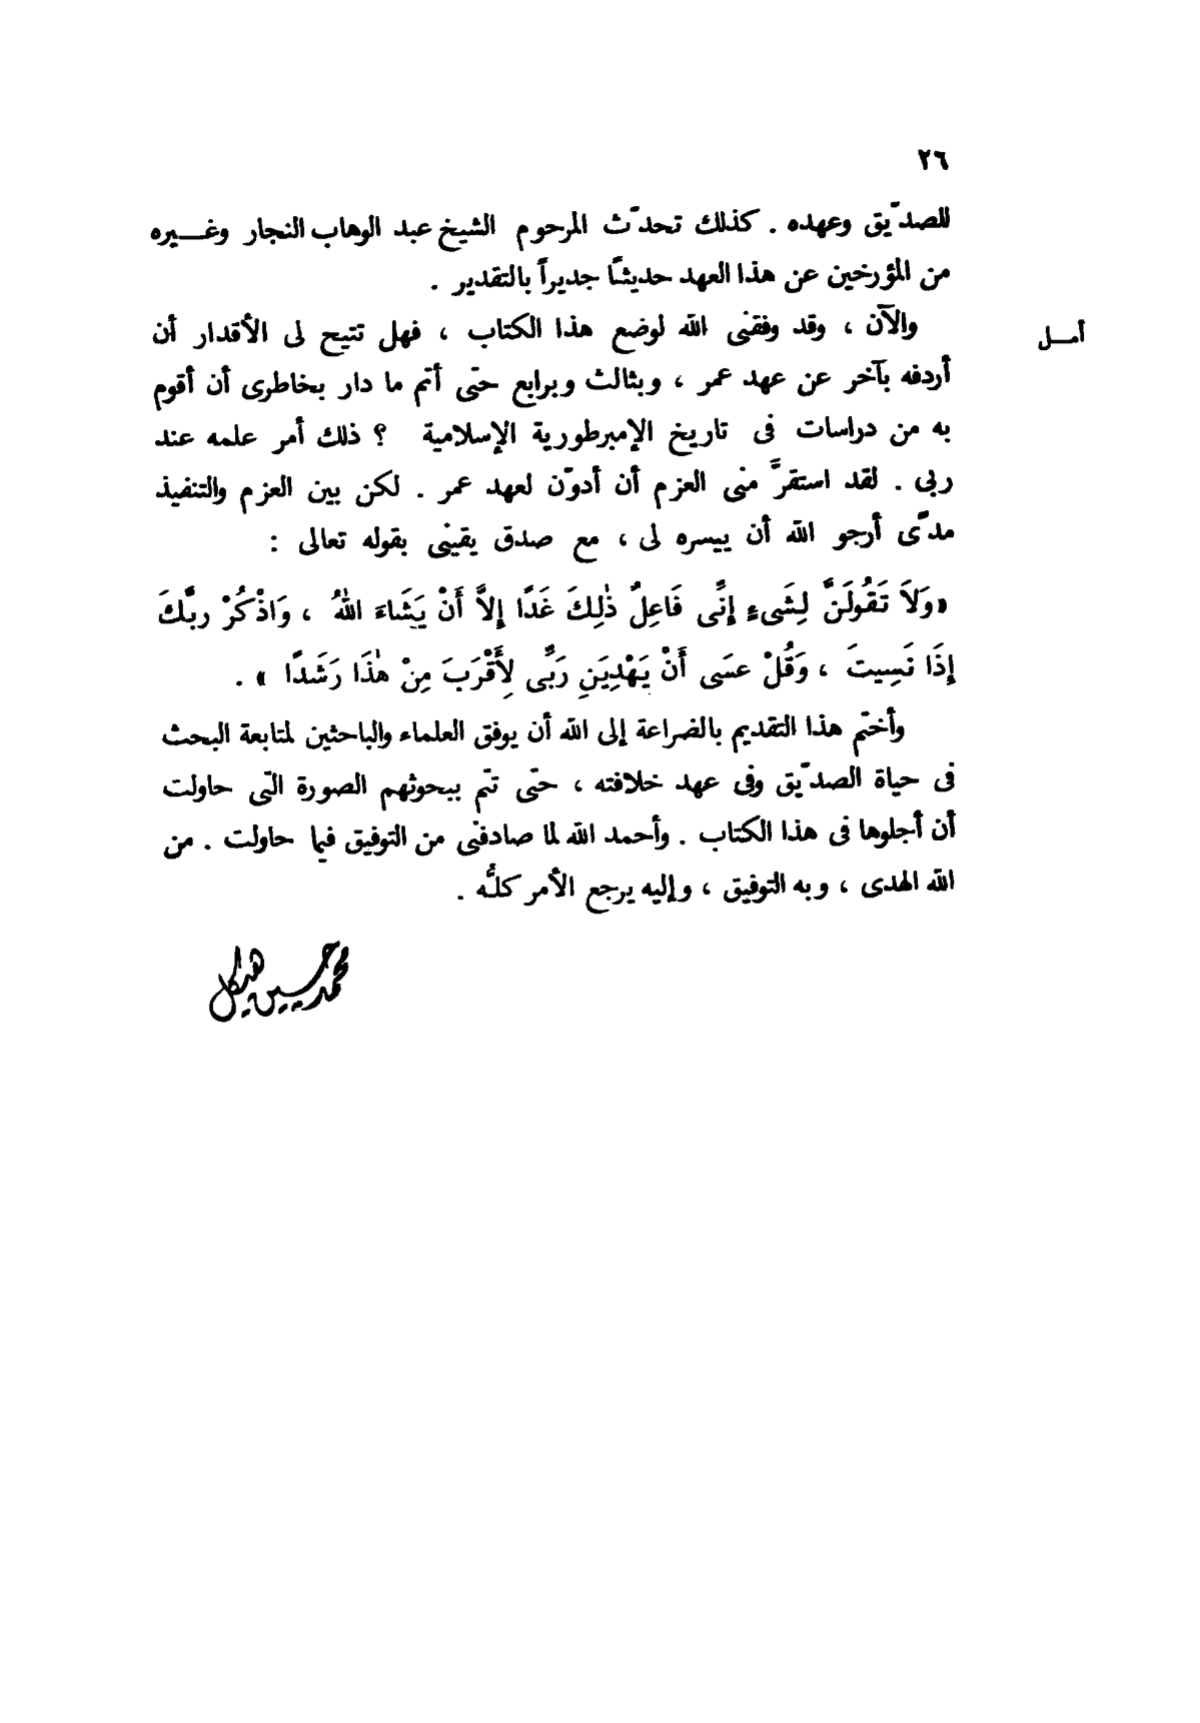 ٢٦
للصدّيق وعهده . كذلك تحدّث المرحوم الشيخ عبد الوهاب النجار وغـــيره
من المؤرخين عن هذا العهد حديثًا جديراً بالتقدير .
أمــل
والآن ، وقد وفقنى الله لوضع هذا الكتاب ، فهل تتيح لى الأقدار أن
أردفه بآخر عن عهد عمر ، وبثالث وبرابع حتى أتم ما دار بخاطرى أن أقوم
به من دراسات فى تاريخ الإمبرطورية الإسلامية ؟ ذلك أمر علمه عند
ربى . لقد استقرَّ منى العزم أن أدوّن لعهد عمر . لكن بين العزم والتنفيذ
مدًى أرجو الله أن ييسره لى ، مع صدق يقينى بقوله تعالى :
«وَلاَ تَقُولَنَّ لِشَىءٍ إِنِّى فَاعِلٌ ذٰلِكَ غَدًا إِلاَّ أَنْ يَشَاءَ اللهُ ، وَاذْكُرْ ربَّكَ
إِذَا نَسِيتَ ، وَقُلْ عسَى أَنْ يَهْدِيَنِ رَبِّى لِأَقْرَبَ مِنْ هٰذَا رَشَدًا » .
وأختم هذا التقديم بالضراعة إلى الله أن يوفق العلماء والباحثين لمتابعة البحث
فى حياة الصدّيق وفى عهد خلافته ، حتى تتم ببحوثهم الصورة التى حاولت
أن أجلوها فى هذا الكتاب . وأحمد الله لما صادفنى من التوفيق فيما حاولت . من
الله الهدى ، وبه التوفيق ، وإليه يرجع الأمر كلُّه .
محمد حسين هيكل